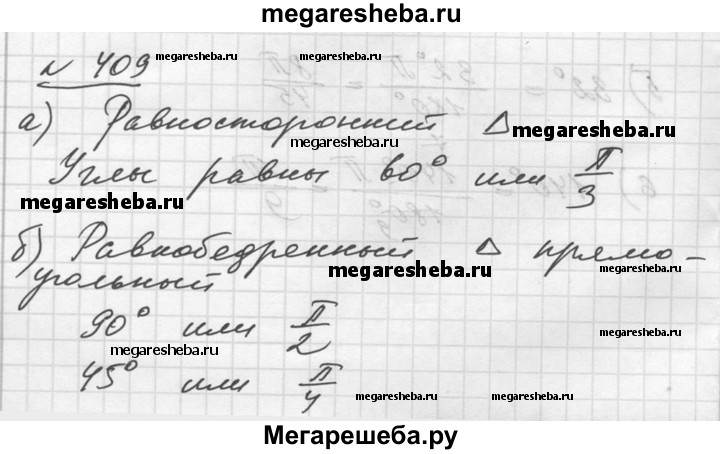 megaresheba.ru
№ 409 megaresheba.ru megaresheba.ru
а) Равносторонний △ megaresheba.ru
Углы равны 60° или π/3
megaresheba.ru
б) Равнобедренный △ прямо-
megaresheba.ru megaresheba.ru
угольный
90° или π/2
megaresheba.ru megaresheba.ru
45° или π/4
megaresheba.ru megaresheba.ru
Мегарешеба.ру